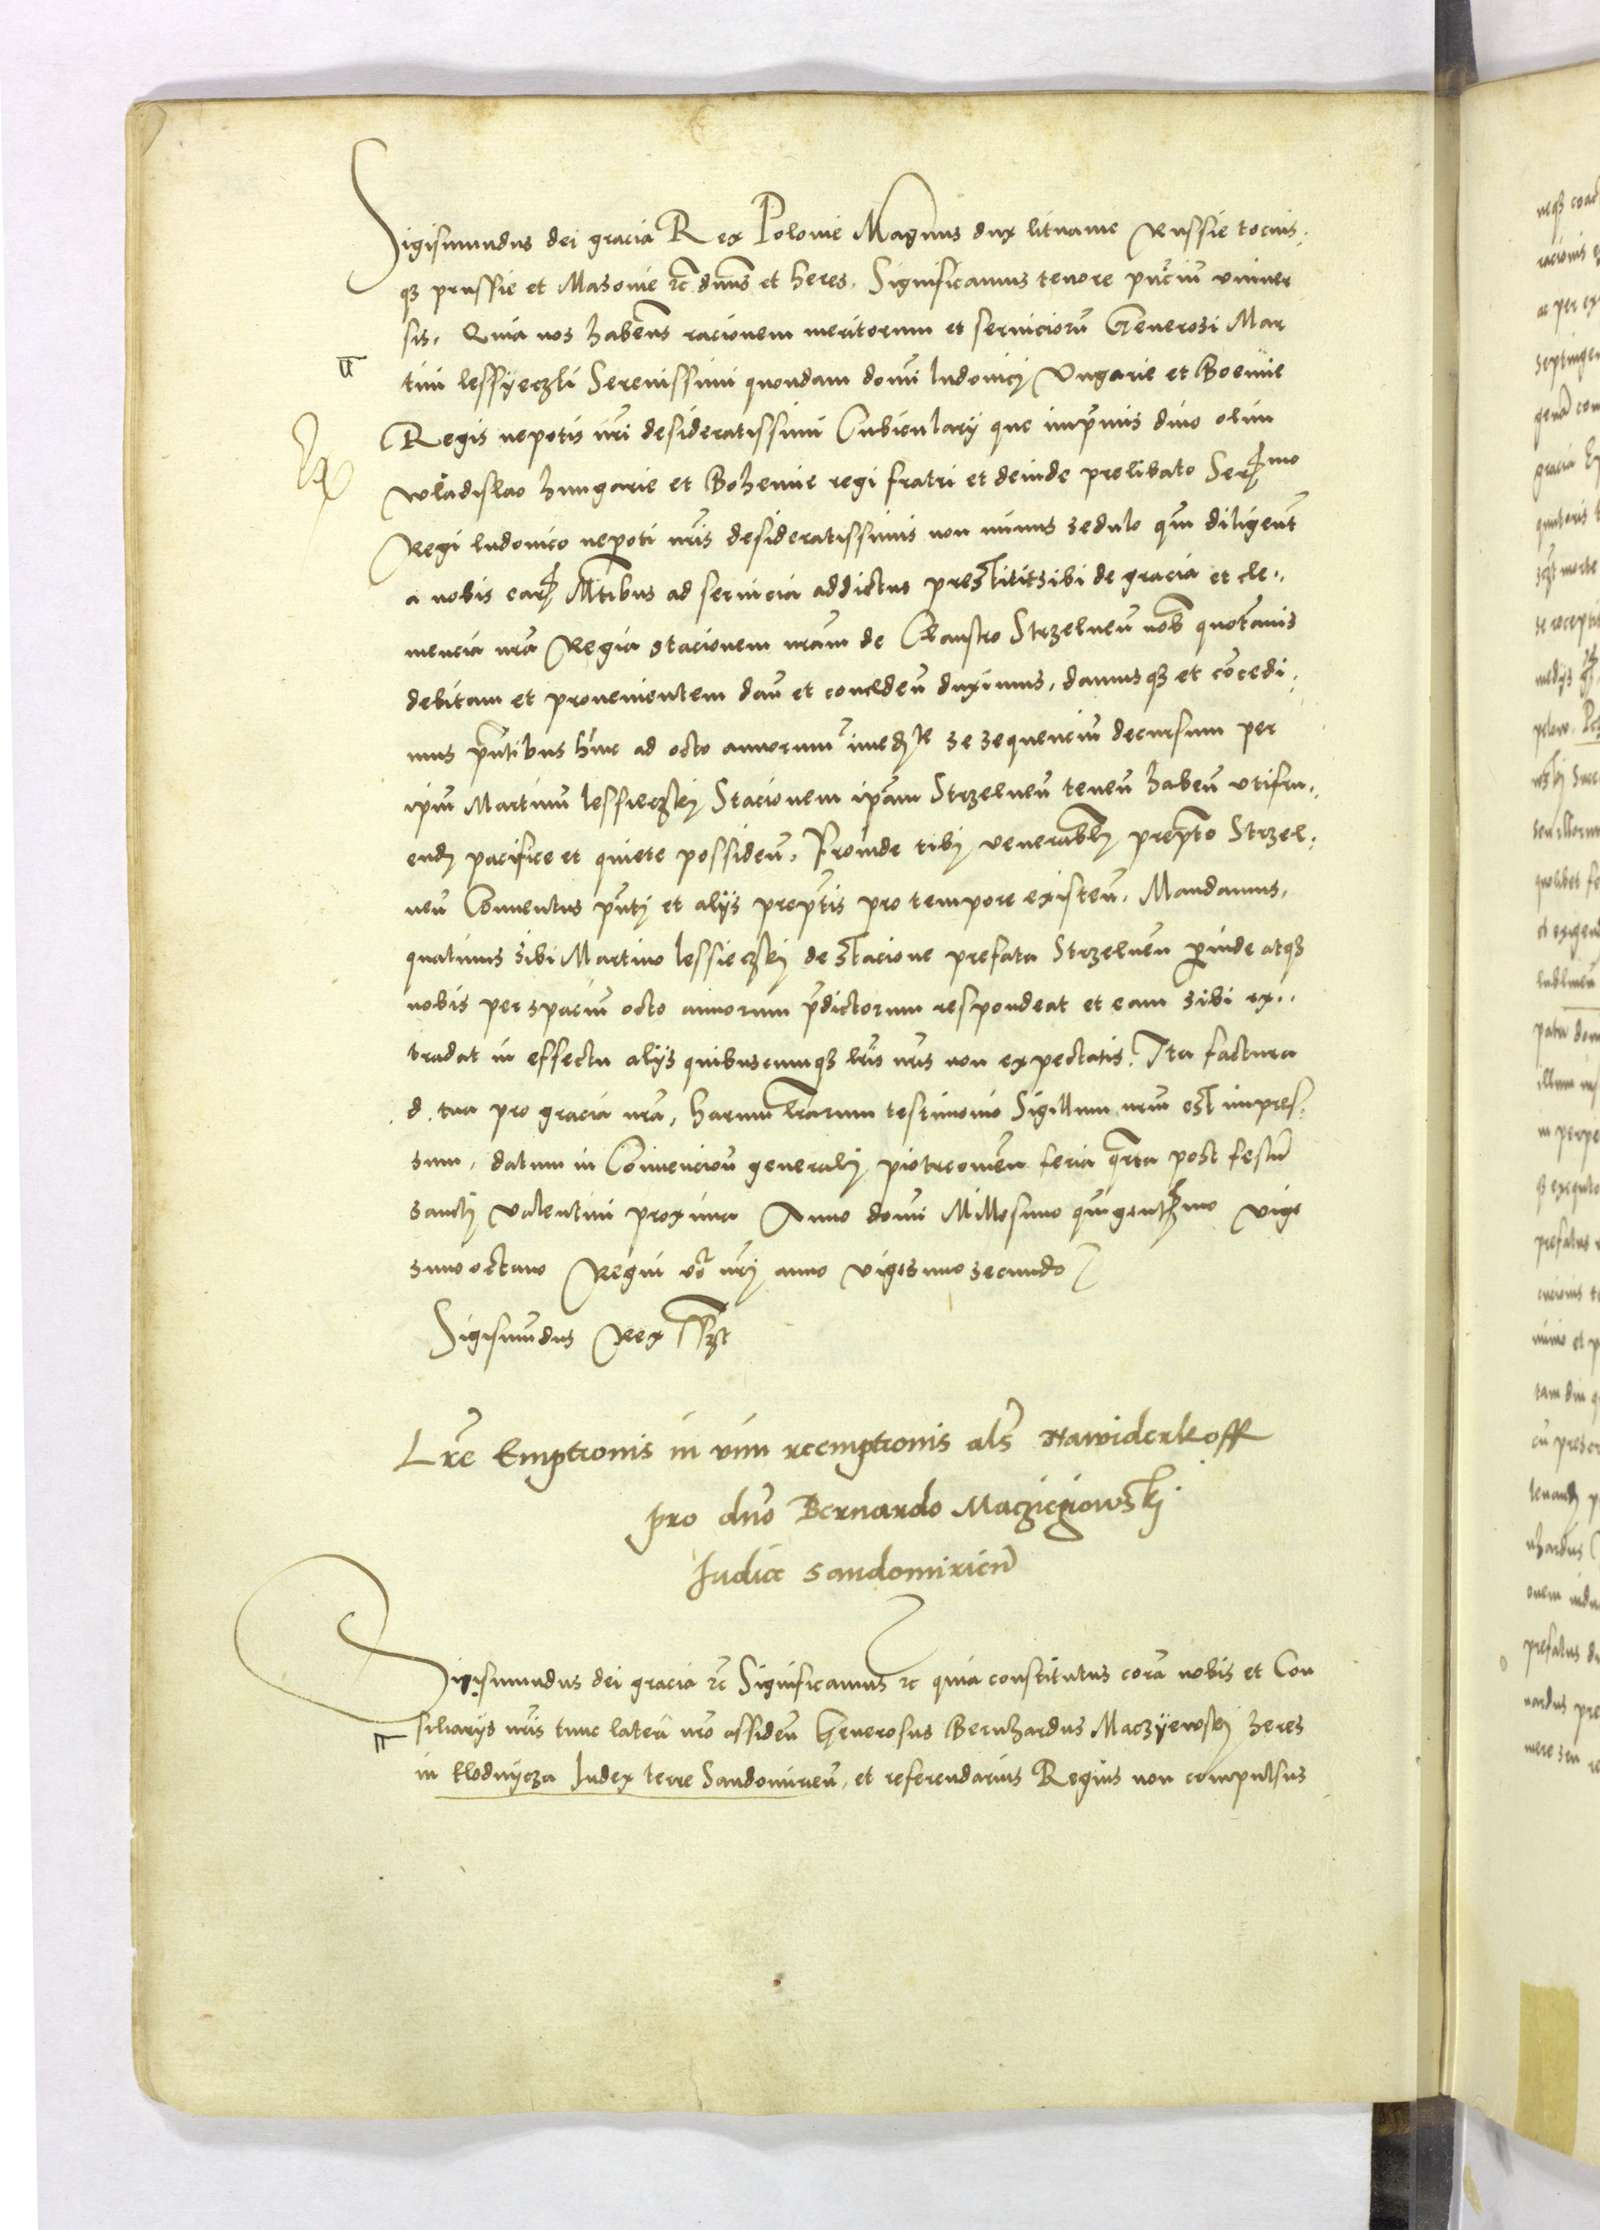 Sigismundus dei gracia Rex Polonie Magnus dux lituanie Russie tocius
qȝ prussie et Masovie ꝛc dūns et heres. Significamus tenore pn̄ciū vniuer
sis. Quia nos habeñs racionem meritorum et seruiciorū Generosi Mar
tini lessyeczki Serenissimi quondam domī ludouicj Vngarie et Boemie
Regis nepotis nr̄i desideratissimi Cubiculary que imp̄mis diuo olim
Wladislao hungarie et Bohemie regi fratri et deinde prelibato Serꝫmo
Regi ludouico nepoti nr̄is desideratissimis non minus sedulo qm̄ diligent̄
a nobis earꝫ Mtībus ad seruicia addictus prestitit sibi de gracia et cle
mencia nr̄a Regia stacionem nr̄am de Claustro Strzelneñ nob̄ quotannis
debitam et prouenientem dañ et concedeñ duximus, damusqȝ et concedi
mus pn̄tibus hinc ad octo annorum imedꝫte se sequenciū decursum per
ipm̄ Martinū lessieczkj Stacionem ipam̄ Strzelneñ teneñ habeñ vtifru
endꝫ pacifice et quiete possideñ. Proinde tibj venerablj preptō Strzel
neñ Conuentus pn̄tj et alijs preptīs pro tempore existeñ. Mandamus,
quatinus sibi Martino lessieczkj de stacione prefata Strzelneñ perinde atqȝ
nobis per spaciū octo annorum p̄dictorum respondeat et eam sibi ex
tradat in effectu alijs quibuscumqȝ lr̄is nr̄is non expectatis. Ita factura
d. tua pro gracia nr̄a, harum lr̄arum testimonio Sigillum nr̄um est impres
sum, datum in Conuencioñ generalj piotrcouieñ feria qrta post festū
sanctj Valentini proxima Anno domī Millesimo quīgentꝫmo vige
simo octauo Regni vō nr̄j anno vigesimo secundo
Sigismūdus Rex sszt
Lr̄e Emptionis in vim reemptionis als̄ Nawiderkoff
pro dn̄o Bernardo Macziejowskj
Judice Sandomirieñ
Sigismundus dei gracia ꝛc Significamus ꝛc quia constitutus corā nobis et Con
siliarijs nr̄is tunc laterī nr̄o assideñ Generosus Bernhardus Maczyewskj heres
in klodnycza Judex terre Sandomirieñ, et referendarius Regius non compulsus